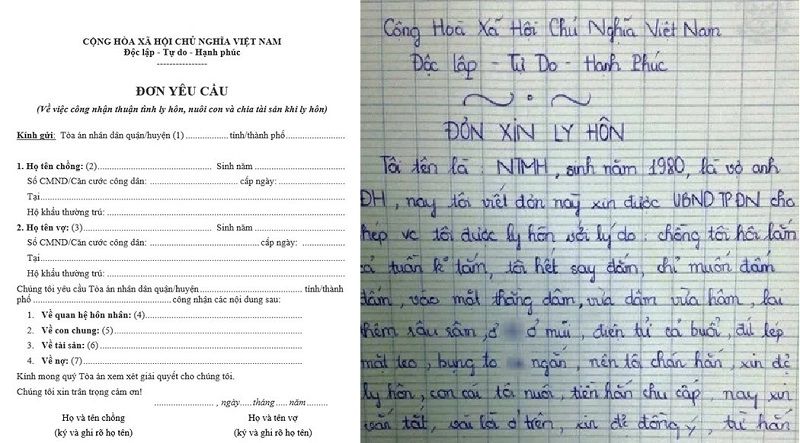 CỘNG HÒA XÃ HỘI CHỦ NGHĨA VIỆT NAM
Độc lập - Tự do - Hạnh phúc
----------------
ĐƠN YÊU CẦU
(Về việc công nhận thuận tình ly hôn, nuôi con và chia tài sản khi ly hôn)
Kính gửi: Tòa án nhân dân quận/huyện (1) .................. tỉnh/thành phố.........................
1. Họ tên chồng: (2)............................................... Sinh năm ....................................
Số CMND/Căn cước công dân: ............................... cấp ngày: ............................
Tại...................................................................................................................
Hộ khẩu thường trú: .........................................................................................
2. Họ tên vợ: (3) .................................................... Sinh năm ....................................
Số CMND/Căn cước công dân: ......................................cấp ngày: ...............
Tại...................................................................................................................
Hộ khẩu thường trú: .........................................................................................
Chúng tôi yêu cầu Tòa án nhân dân quận/huyện....................................tỉnh/thành
phố ................................................công nhận các nội dung sau:
1. Về quan hệ hôn nhân: (4)..........................................................................
2. Về con chung: (5) ....................................................................................
3. Về tài sản: (6) ..........................................................................................
4. Về nợ: (7).................................................................................................
Kính mong quý Tòa án xem xét giải quyết cho chúng tôi.
Chúng tôi xin trân trọng cảm ơn!
......................, ngày.....tháng.....năm.........
Họ và tên chồng Họ và tên vợ
(ký và ghi rõ họ tên) (ký và ghi rõ họ tên)
Cộng Hoà Xã Hội Chủ Nghĩa Việt Nam
Độc lập - Tự Do - Hạnh Phúc
ĐƠN XIN LY HÔN
Tôi tên là : NTMH, sinh năm 1980, là vợ anh
ĐH, nay tôi viết đơn này xin được UBND TP ĐN cho
hép vc tôi được ly hôn với lý do : chồng tôi hôi lắm
ả tuần k° tắm, tôi hết say đắm, chỉ muốn đấm
đấm, vào mặt thằng dâm, vừa dâm vừa hâm, lại
thêm râu rậm, ở ở mũi, điện tử cả buổi, đít lép
mặt teo, bụng to ngắn, nên tôi chán hắn, xin để
ly hôn, con cái tôi nuôi, tiền hắn chu cấp, nay xin
vắn tắt, vài lời ở trên, xin để đồng ý, từ hắn